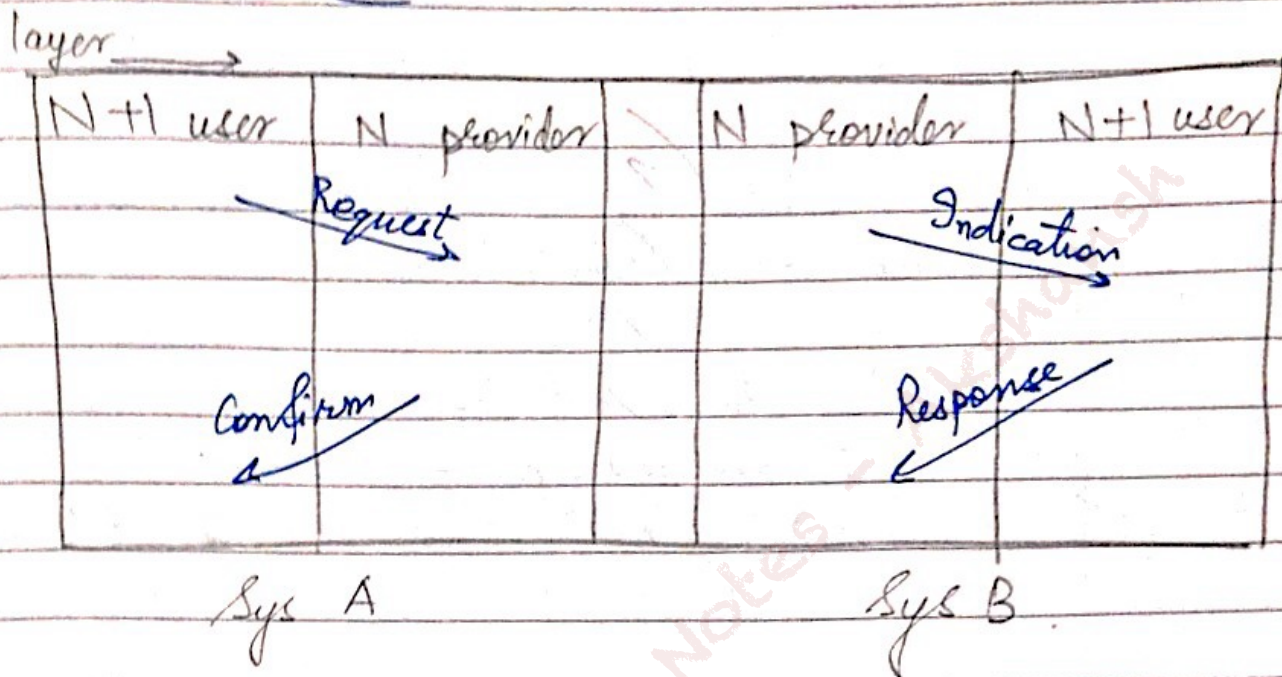 layer
N+1 user N provider N provider N+1 user
Request Indication
Confirm Response
Sys A Sys B
Notes - Akshansh